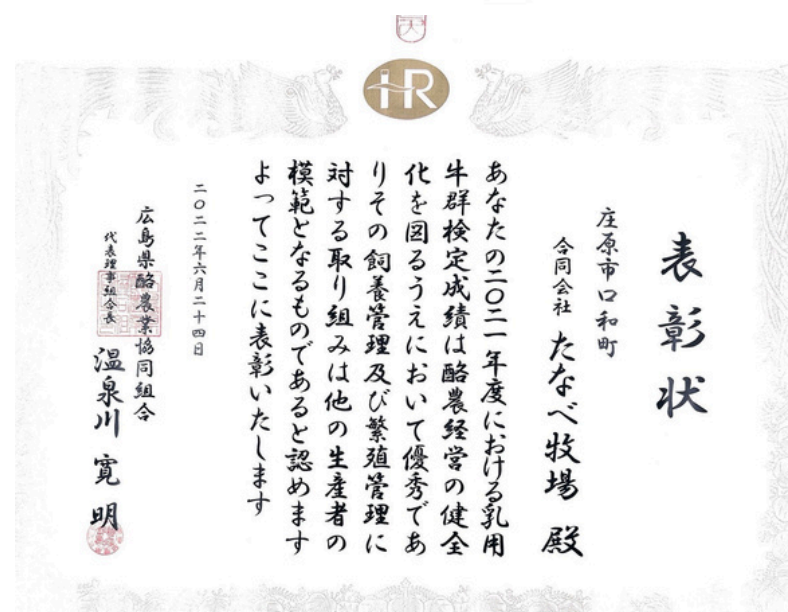 天
HR
表彰状
庄原市口和町
合同会社 たなべ牧場 殿
あなたの二〇二一年度における乳用
牛群検定成績は酪農経営の健全
化を図るうえにおいて優秀であ
りその飼養管理及び繁殖管理に
対する取り組みは他の生産者の
模範となるものであると認めます
よってここに表彰いたします
二〇二二年六月二十四日
広島県酪農業協同組合
代表理事組合長 温泉川寛明